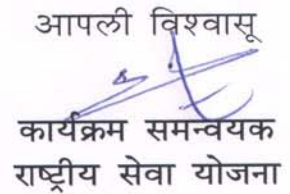 आपली विश्वासू
कार्यक्रम समन्वयक
राष्ट्रीय सेवा योजना